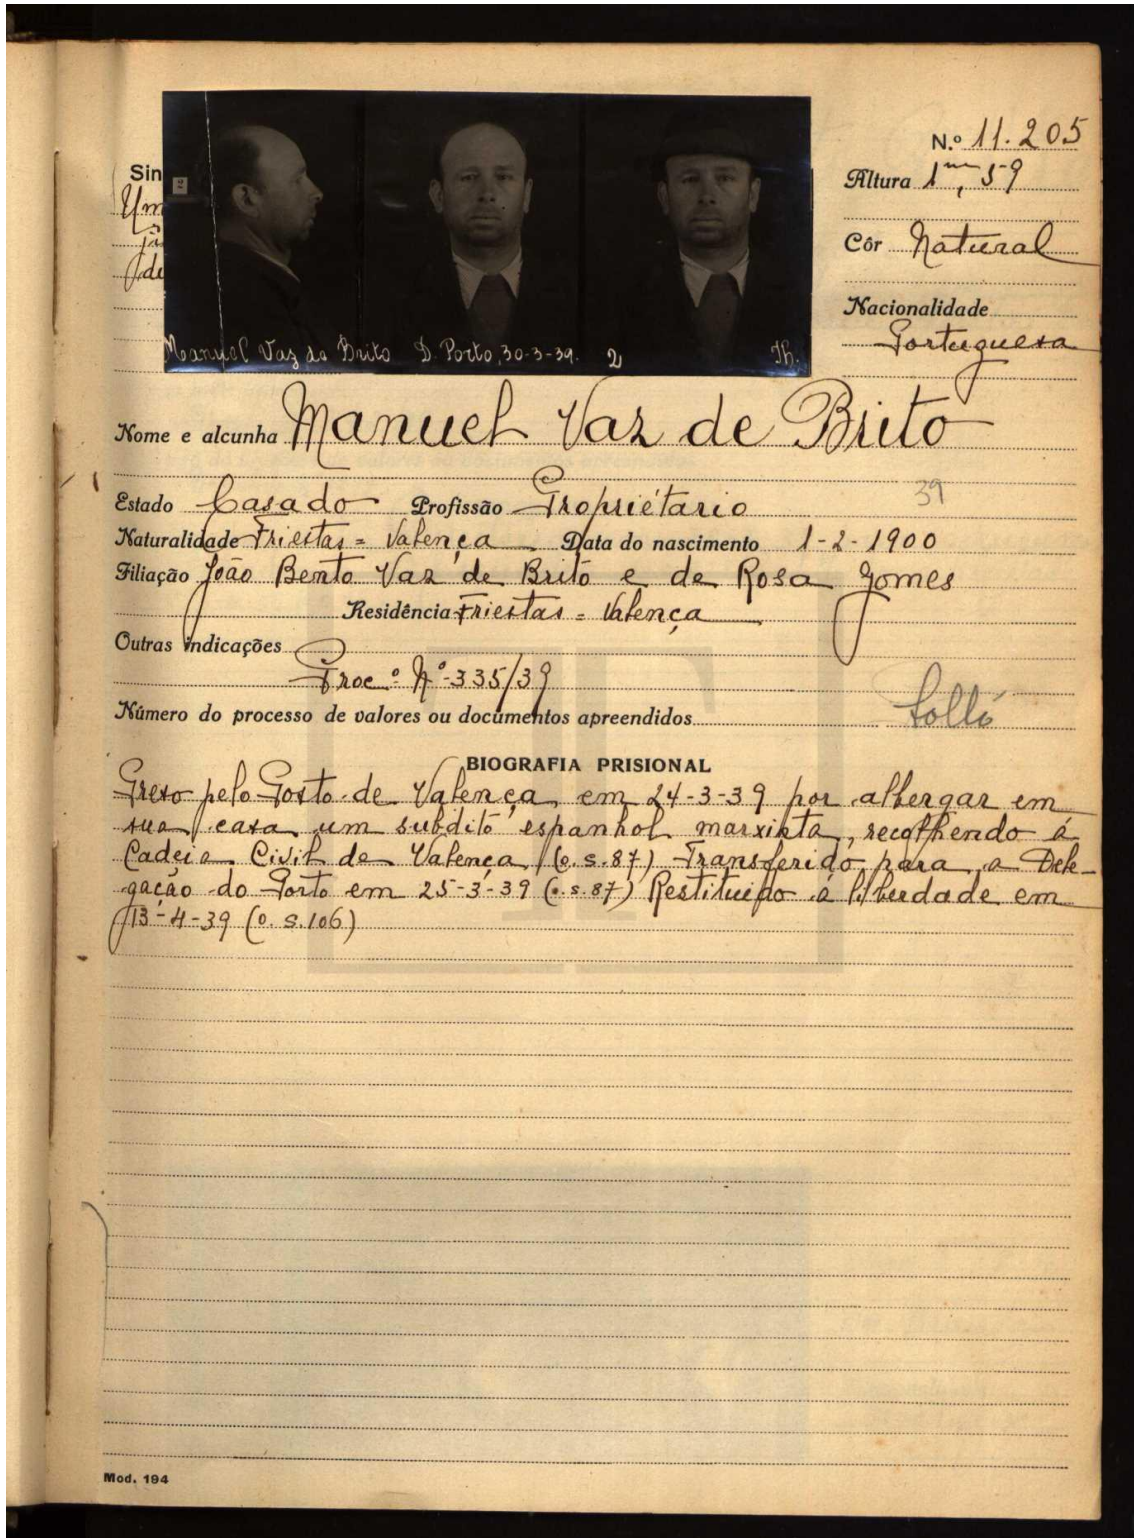 N.º 11.205
Sin
Um
Altura 1m,59
Côr Natural
de
Nacionalidade
Portuguesa
Manuel Vaz de Brito D. Porto, 30-3-39. 2 Th.
Nome e alcunha Manuel Vaz de Brito
39
Estado Casado Profissão Propriétario
Naturalidade Friestas = Valença Data do nascimento 1-2-1900
Filiação João Bento Vaz de Brito e de Rosa Gomes
Residência Friestas = Valença
Outras indicações
Proc.º N.º 335/39
Número do processo de valores ou documentos apreendidos
BIOGRAFIA PRISIONAL
Preso pelo Posto de Valença em 24-3-39 por albergar em
sua casa um subdito espanhol marxista, recolhendo á
Cadeia Civil de Valença (o.s.87) Transferido para a Dele-
gação do Porto em 25-3-39 (o.s.87) Restituido á liberdade em
13-4-39 (o.s.106)
Mod. 194